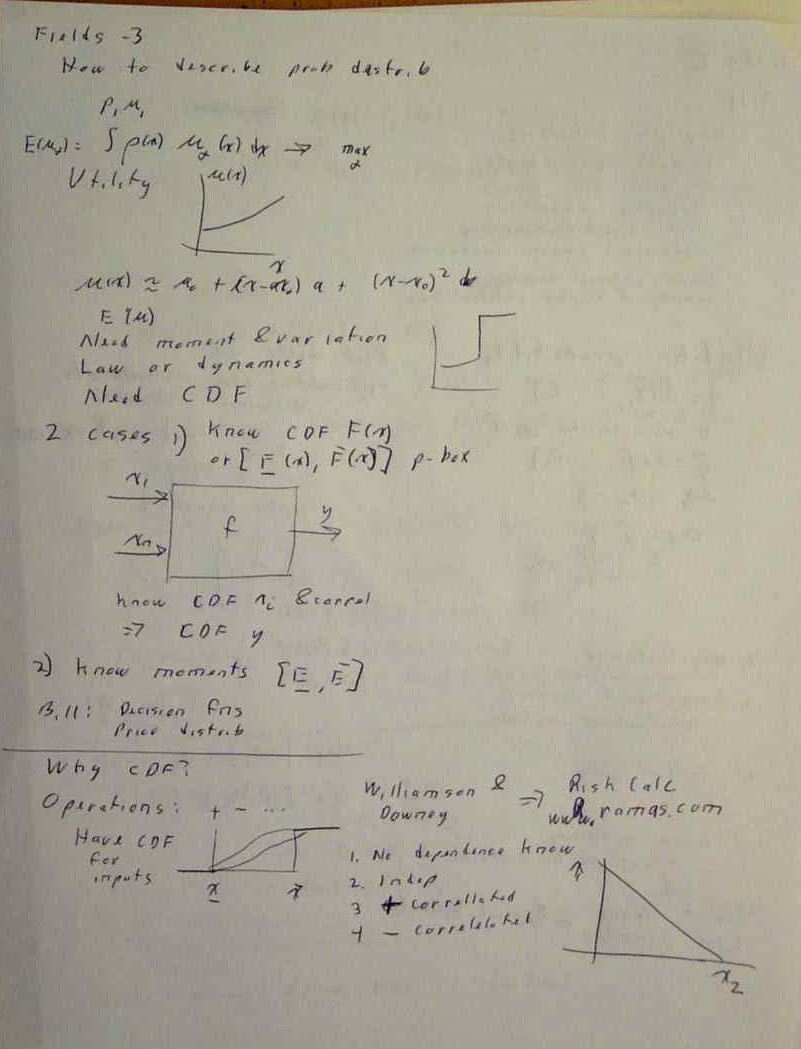 Fields -3
How to describe prob distrib
P, u,
E(u_α) = ∫ ρ(x) u_α(x) dx → max α
Utility
u(x)
x
u(x) ≃ u₀ + (x-x₀) a + (x-x₀)²
E(u)
Need moment & variation
Law or dynamics
Need CDF
2 cases 1) Know CDF F(x)
or [F(x), F̄(x)] p-box
x₁
f
y
xₙ
know CDF xᵢ & correl
⇒ CDF y
2) Know moments [E, Ē]
Bill: Decision fns
Price distrib
Why CDF?
Operations: + - ...
Have CDF
for
inputs
x
x̄
Williamson & ⇒ Risk Calc
Downey
www.ramas.com
1. No dependence know
2. Indep
3 + correllated
4 - correlelated
x₂